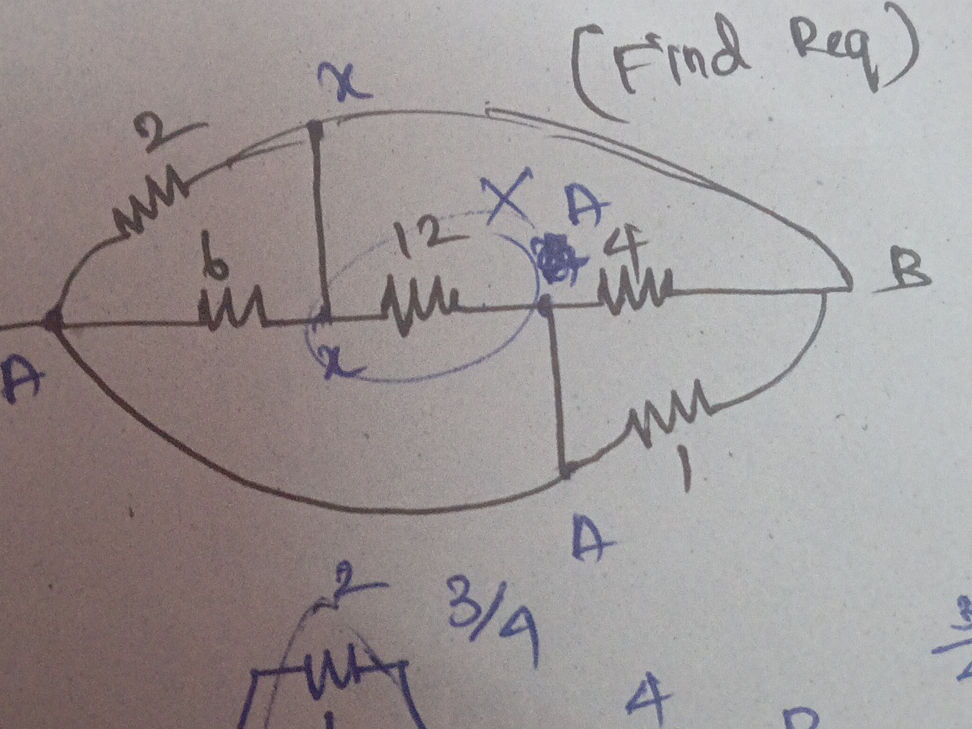 (Find Req)
x
2
X
A
6
12
4
B
x
A
1
A
2
3/4
4